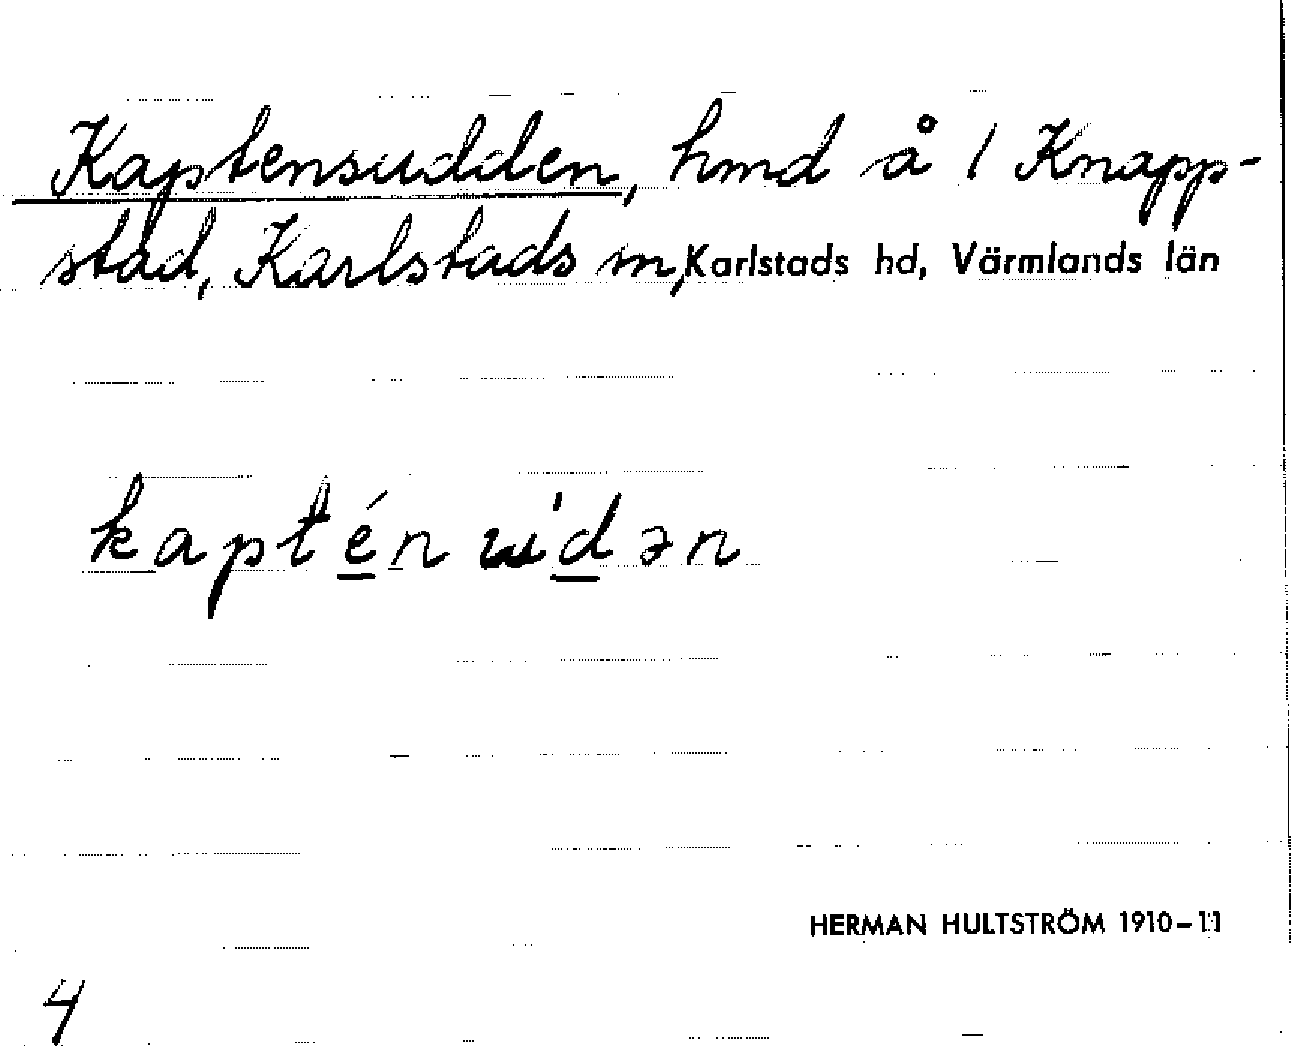 Kaptensudden, hmd å 1 Knapp-
stad, Karlstads sn, Karlstads hd, Värmlands län
kaptén u̇dən
HERMAN HULTSTRÖM 1910-11
4